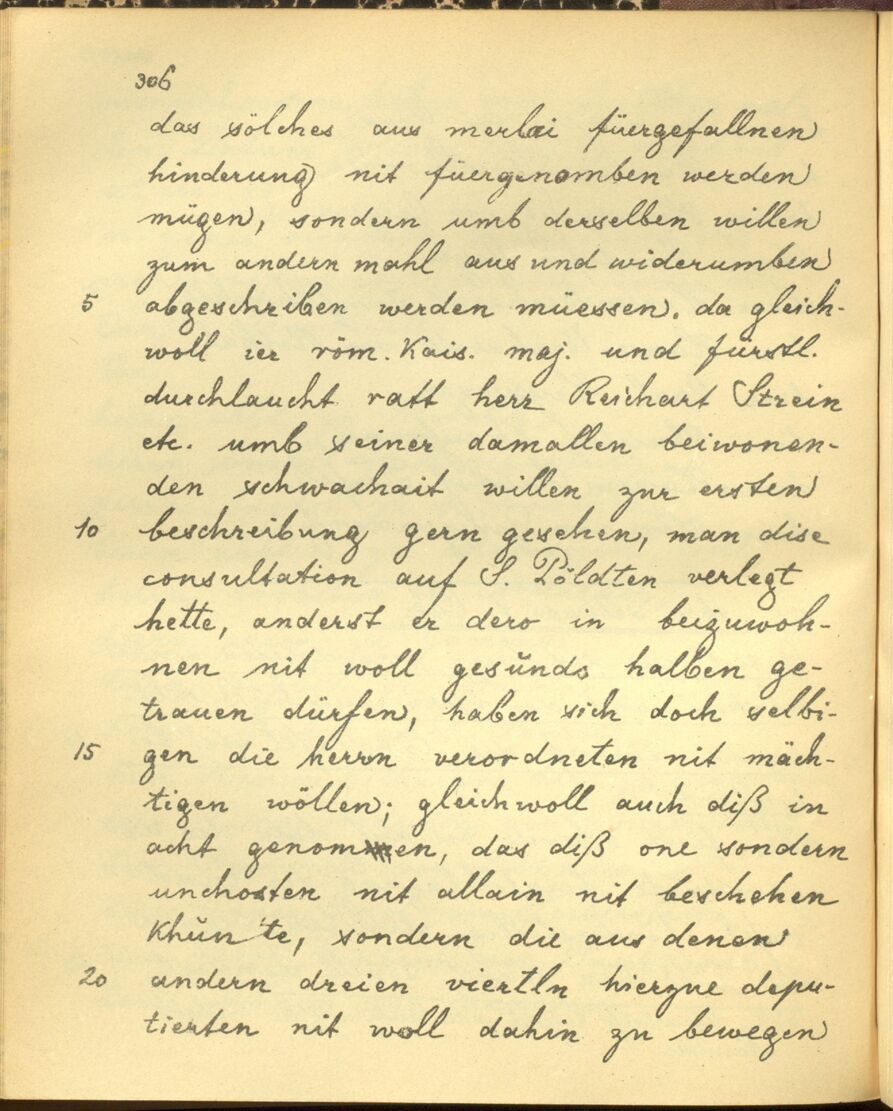 306
das sölches aus merlai füergefallnen
hinderung nit füergenomben werden
mügen, sondern umb derselben willen
zum andern mahl aus und widerumben
5 abgeschriben werden müessen. da gleich-
woll ier röm. Kais. maj. und fürstl.
durchlaucht ratt herr Reichart Strein
etc. umb seiner damallen beiwonen-
den schwachait willen zur ersten
10 beschreibung gern gesehen, man dise
consultation auf S. Pöldten verlegt
hette, anderst er dero in beizuwoh-
nen nit woll gesunds halben ge-
trauen dürfen, haben sich doch selbi-
15 gen die herrn verordneten nit mäch-
tigen wöllen; gleichwoll auch diß in
acht genomen, das diß one sondern
unchosten nit allain nit beschehen
khün'te, sondern die aus denen
20 andern dreien viertln hierzue depu-
tierten nit woll dahin zu bewegen